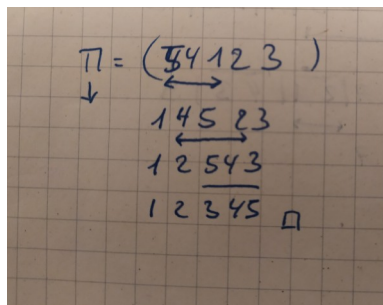 π = (5 4 1 2 3 )
1 4 5 2 3
1 2 5 4 3
1 2 3 4 5 □